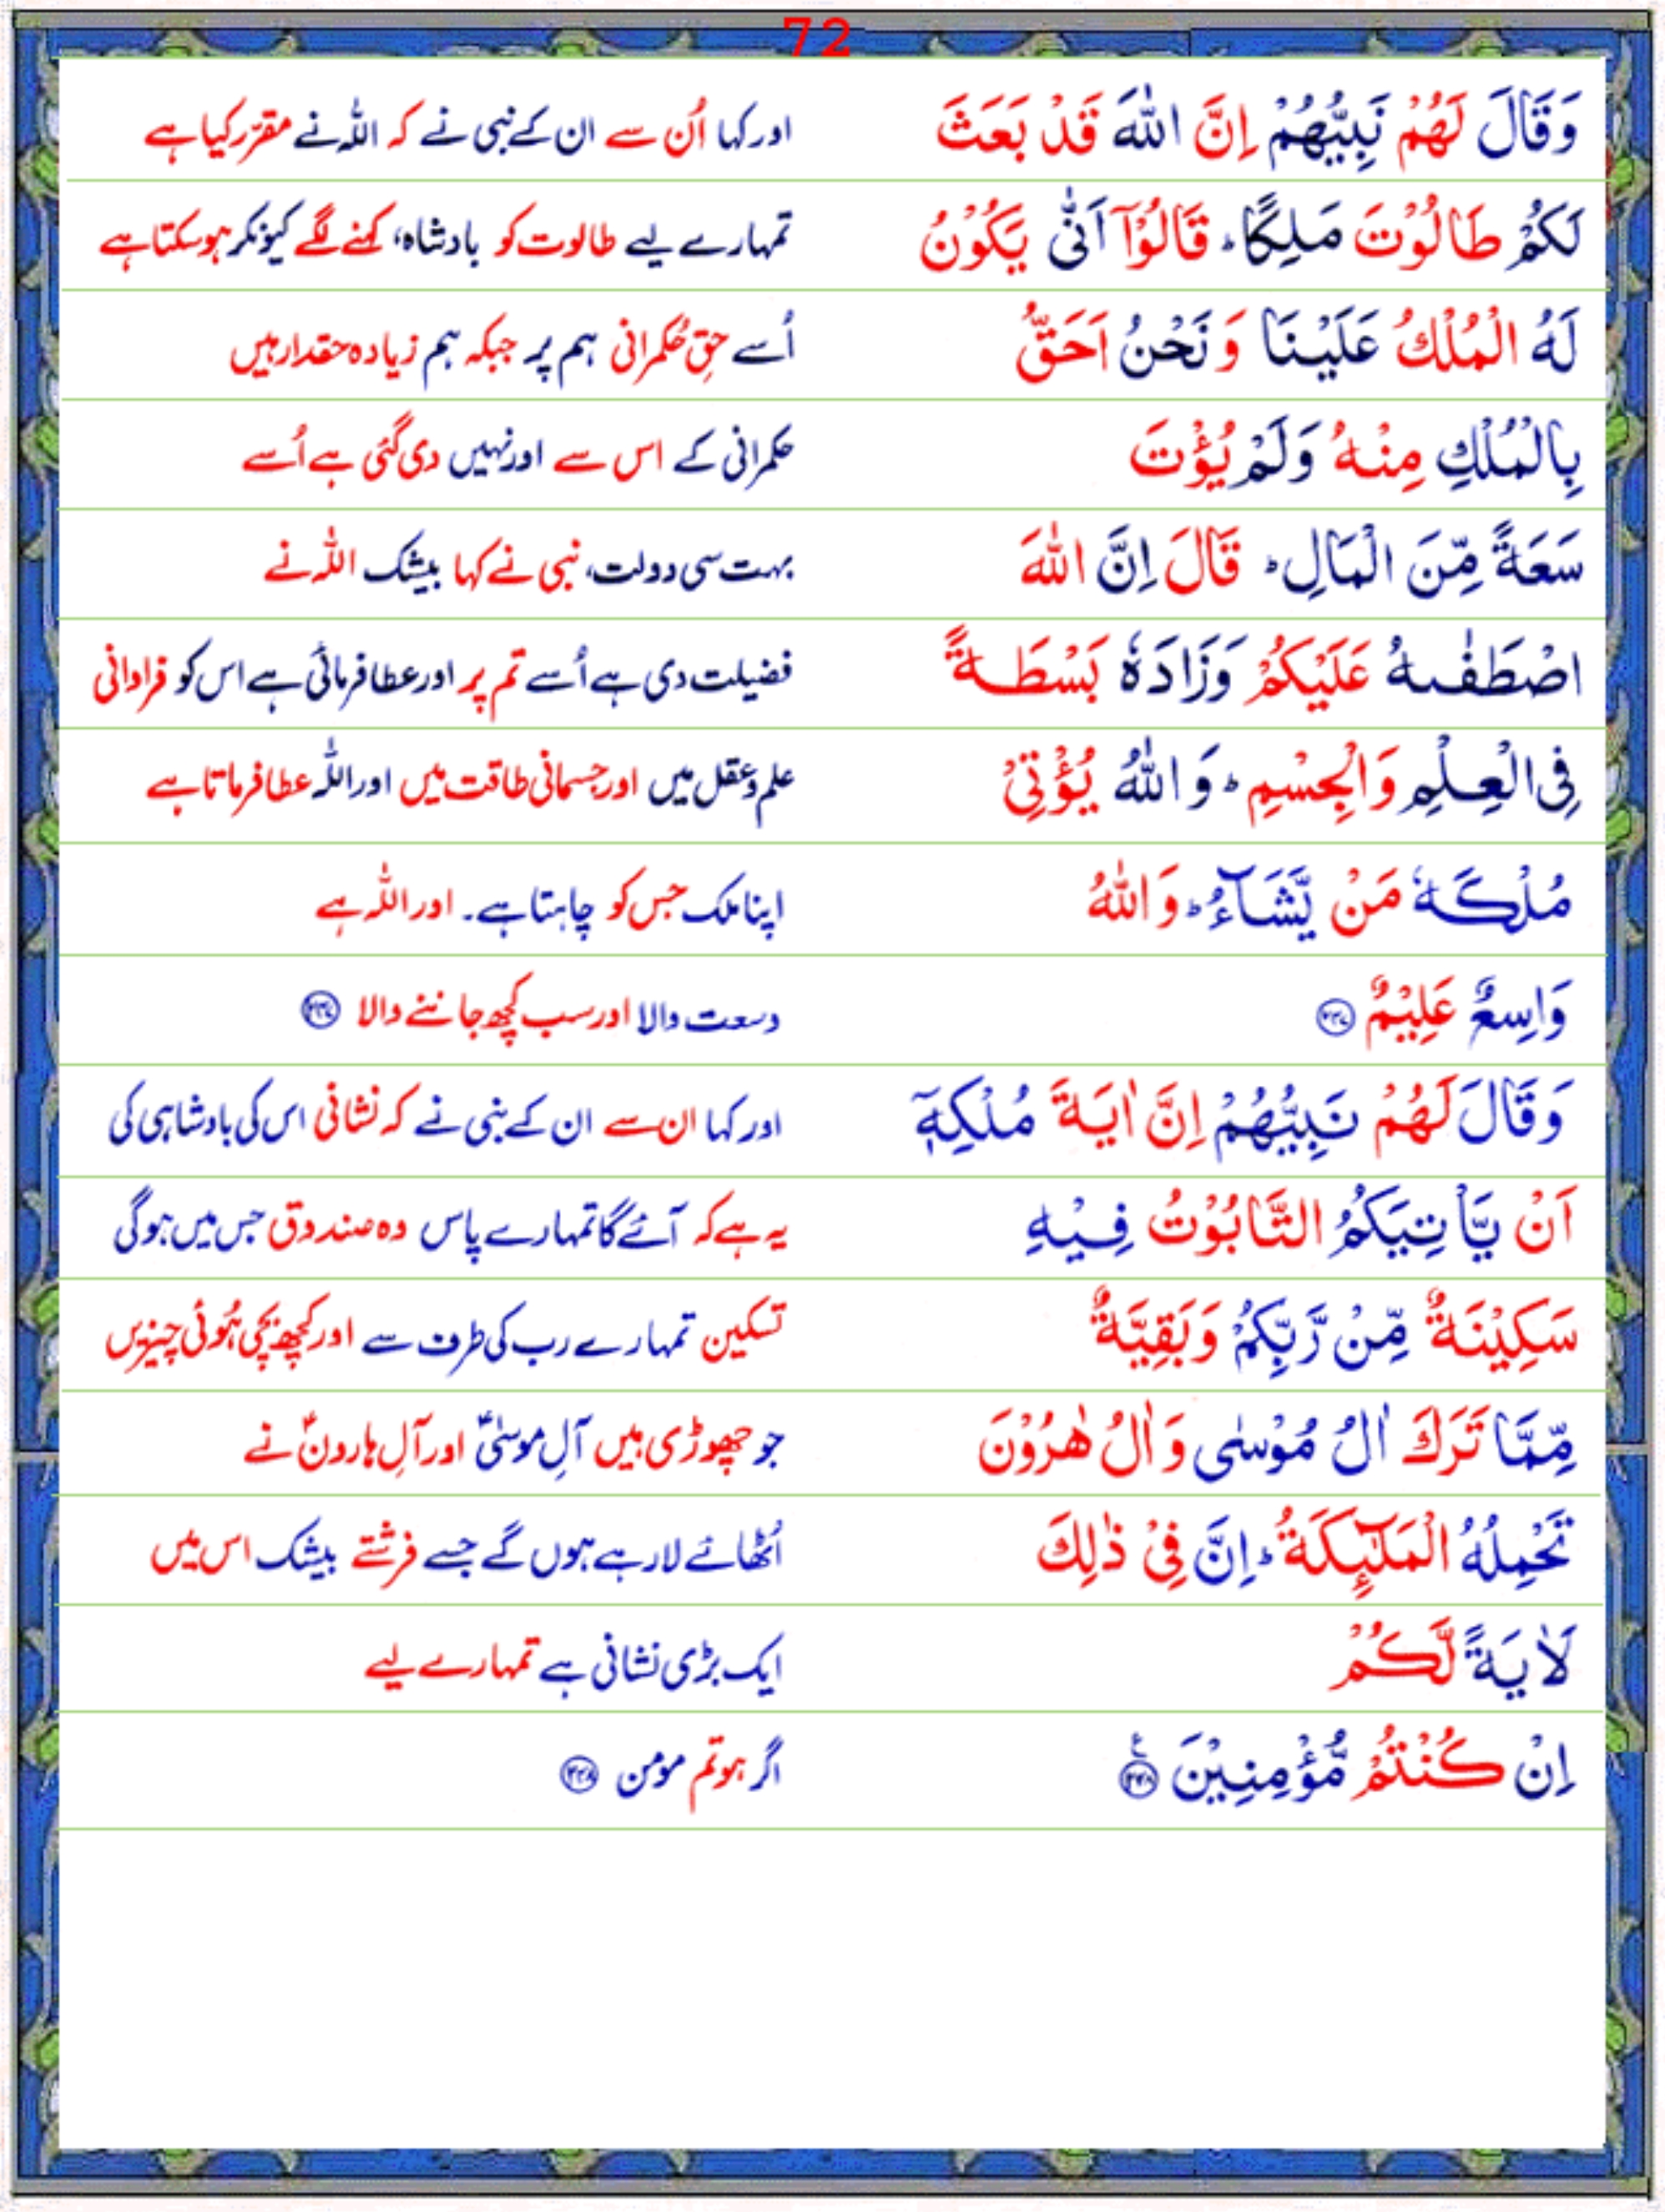 72
وَقَالَ لَهُمْ نَبِيُّهُمْ اِنَّ اللّٰهَ قَدْ بَعَثَ اور کہا اُن سے ان کے نبی نے کہ اللہ نے مقرّر کیا ہے
لَكُمْ طَالُوْتَ مَلِكًا ؕ قَالُوْٓا اَنّٰى يَكُوْنُ تمہارے لیے طالوت کو بادشاہ، کہنے لگے کیونکر ہوسکتا ہے
لَهُ الْمُلْكُ عَلَيْنَا وَنَحْنُ اَحَقُّ اُسے حقِ حُکمرانی ہم پر جبکہ ہم زیادہ حقدار ہیں
بِالْمُلْكِ مِنْهُ وَلَمْ يُؤْتَ حکمرانی کے اس سے اور نہیں دی گئی ہے اُسے
سَعَةً مِّنَ الْمَالِ ؕ قَالَ اِنَّ اللّٰهَ بہت سی دولت، نبی نے کہا بیشک اللہ نے
اصْطَفٰىهُ عَلَيْكُمْ وَزَادَهٗ بَسْطَةً فضیلت دی ہے اُسے تم پر اور عطا فرمائی ہے اس کو فراوانی
فِى الْعِلْمِ وَالْجِسْمِ ؕ وَاللّٰهُ يُؤْتِىْ علم و عقل میں اور جسمانی طاقت میں اور اللہ عطا فرماتا ہے
مُلْكَهٗ مَنْ يَّشَآءُ ؕ وَاللّٰهُ اپنا ملک جس کو چاہتا ہے۔ اور اللہ ہے
وَاسِعٌ عَلِيْمٌ ﴿۲۴۷﴾ وسعت والا اور سب کچھ جاننے والا ﴿۲۴۷﴾
وَقَالَ لَهُمْ نَبِيُّهُمْ اِنَّ اٰيَةَ مُلْكِهٖٓ اور کہا ان سے ان کے نبی نے کہ نشانی اس کی بادشاہی کی
اَنْ يَّاْتِيَكُمُ التَّابُوْتُ فِيْهِ یہ ہے کہ آئے گا تمہارے پاس وہ صندوق جس میں ہوگی
سَكِيْنَةٌ مِّنْ رَّبِّكُمْ وَبَقِيَّةٌ تسکین تمہارے رب کی طرف سے اور کچھ بچی ہُوئی چیزیں
مِّمَّا تَرَكَ اٰلُ مُوْسٰى وَاٰلُ هٰرُوْنَ جو چھوڑی ہیں آلِ موسیٰؑ اور آلِ ہارونؑ نے
تَحْمِلُهُ الْمَلٰٓئِكَةُ ؕ اِنَّ فِىْ ذٰلِكَ اُٹھائے لا رہے ہوں گے جسے فرشتے بیشک اس میں
لَاٰيَةً لَّكُمْ ایک بڑی نشانی ہے تمہارے لیے
اِنْ كُنْتُمْ مُّؤْمِنِيْنَ ﴿۲۴۸﴾ ع اگر ہو تم مومن ﴿۲۴۸﴾